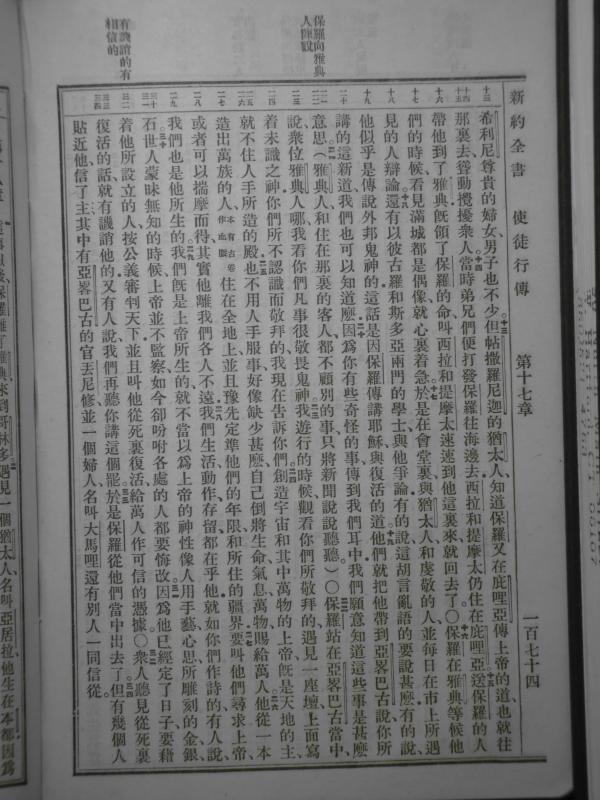 新約全書 使徒行傳 第十七章 一百七十四
希利尼尊貴的婦女、男子也不少但帖撒羅尼迦的猶太人、知道保羅又在庇哩亞傳上帝的道也就往
那裏去聳動攪擾衆人當時弟兄們便打發保羅往海邊去西拉和提摩太仍住在庇哩亞送保羅的人
帶他到了雅典旣領了保羅的命叫西拉和提摩太速速到他這裏來就回去了〇保羅在雅典等候他
們的時候看見滿城都是偶像就心裏着急於是在會堂裏與猶太人和虔敬的人、並每日在市上所遇
見的人辯論還有以彼古羅和斯多亞兩門的學士、與他爭論有的說這胡言亂語的要說甚麽有的說、
他似乎是傳說外邦鬼神的這話是因保羅傳講耶穌與復活的道他們就把他帶到亞畧巴古說你所
講的這新道我們也可以知道麽因爲你有些奇怪的事傳到我們耳中我們願意知道這些事是甚麽
意思（雅典人和住在那裏的客人都不顧別的事只將新聞說說聽聽）〇保羅站在亞畧巴古當中
說衆位雅典人哪我看你們凡事很敬畏鬼神我遊行的時候觀看你們所敬拜的遇見一座壇上面寫
着未識之神你們所不認識而敬拜的我現在告訴你們創造宇宙和其中萬物的上帝旣是天地的主、
就不住人手所造的殿也不用人手服事好像缺少甚麽自己倒將生命氣息萬物賜給萬人他從一本
造出萬族的人本有古卷作血脈住在全地上並且豫先定準他們的年限和所住的疆界要叫他們尋求上帝、
或者可以揣摩而得其實他離我們各人不遠我們生活動作存留都在乎他就如你們作詩的有人說、
我們也是他所生的我們旣是上帝所生的就不當以爲上帝的神性像人用手藝心思所雕刻的金銀
石世人蒙昧無知的時候上帝並不監察如今卻吩咐各處的人都要悔改因爲他已經定了日子要藉
着他所設立的人按公義審判天下並且叫他從死裏復活給萬人作可信的憑據〇衆人聽見從死裏
復活的話就有譏誚他的又有人說我們再聽你講這個罷於是保羅從他們當中出去了但有幾個人
貼近他信了主其中有亞畧巴古的官丟尼修並一個婦人名叫大馬哩還有別人一同信從
保羅向雅典
有譏誚的有
相信的